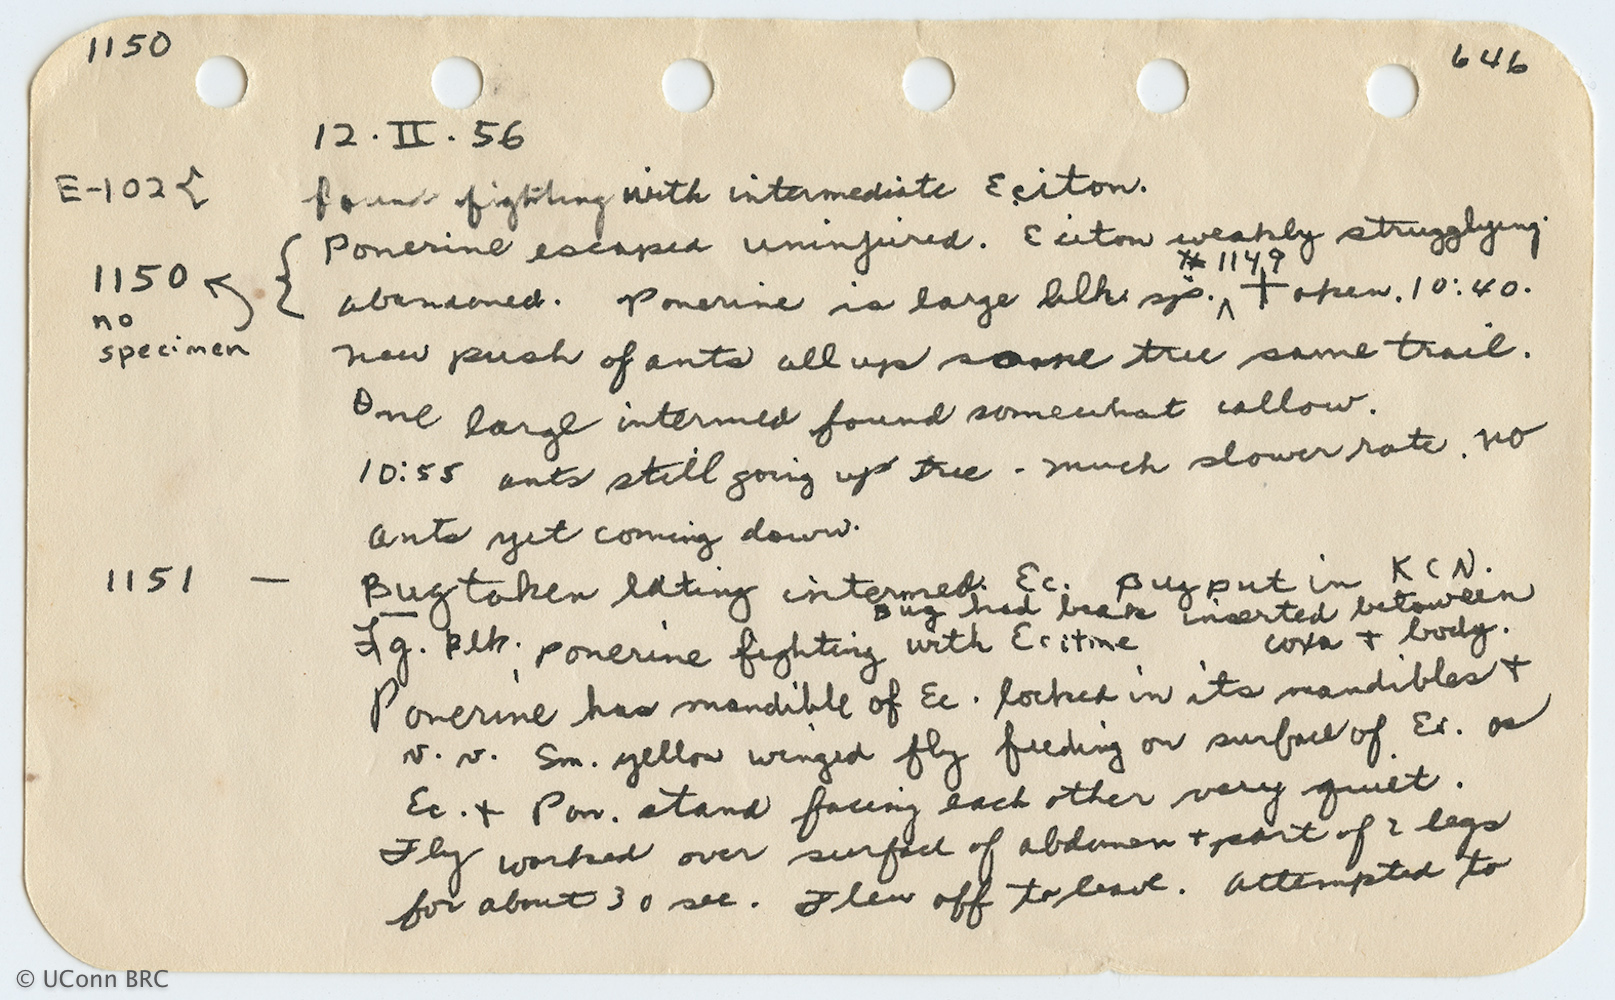 1150
646
12.II.56
E-102 {
found fighting with intermediate Eciton.
Ponerine escaped uninjured. Eciton weakly strugglying
# 1149
1150
no
specimen
abandoned. Ponerine is large blk. sp. ^ Token. 10:40.
new push of ants all up same tree same trail.
One large intermed found somewhat callow.
10:55 ants still going up tree - much slower rate. no
ants yet coming down.
1151 — Bug taken eating intermed. Ec. Bug put in KCN.
Bug had beak inserted between
coxa + body.
Lg. Blk. ponerine fighting with Ecitine
Ponerine has mandible of Ec. locked in its mandibles +
v. v. Sm. yellow winged fly feeding on surface of Ec. as
Ec. + Pon. stand facing each other very quiet.
Fly worked over surface of abdomen + part of 2 legs
for about 30 sec. Flew off to leave. Attempted to
© UConn BRC